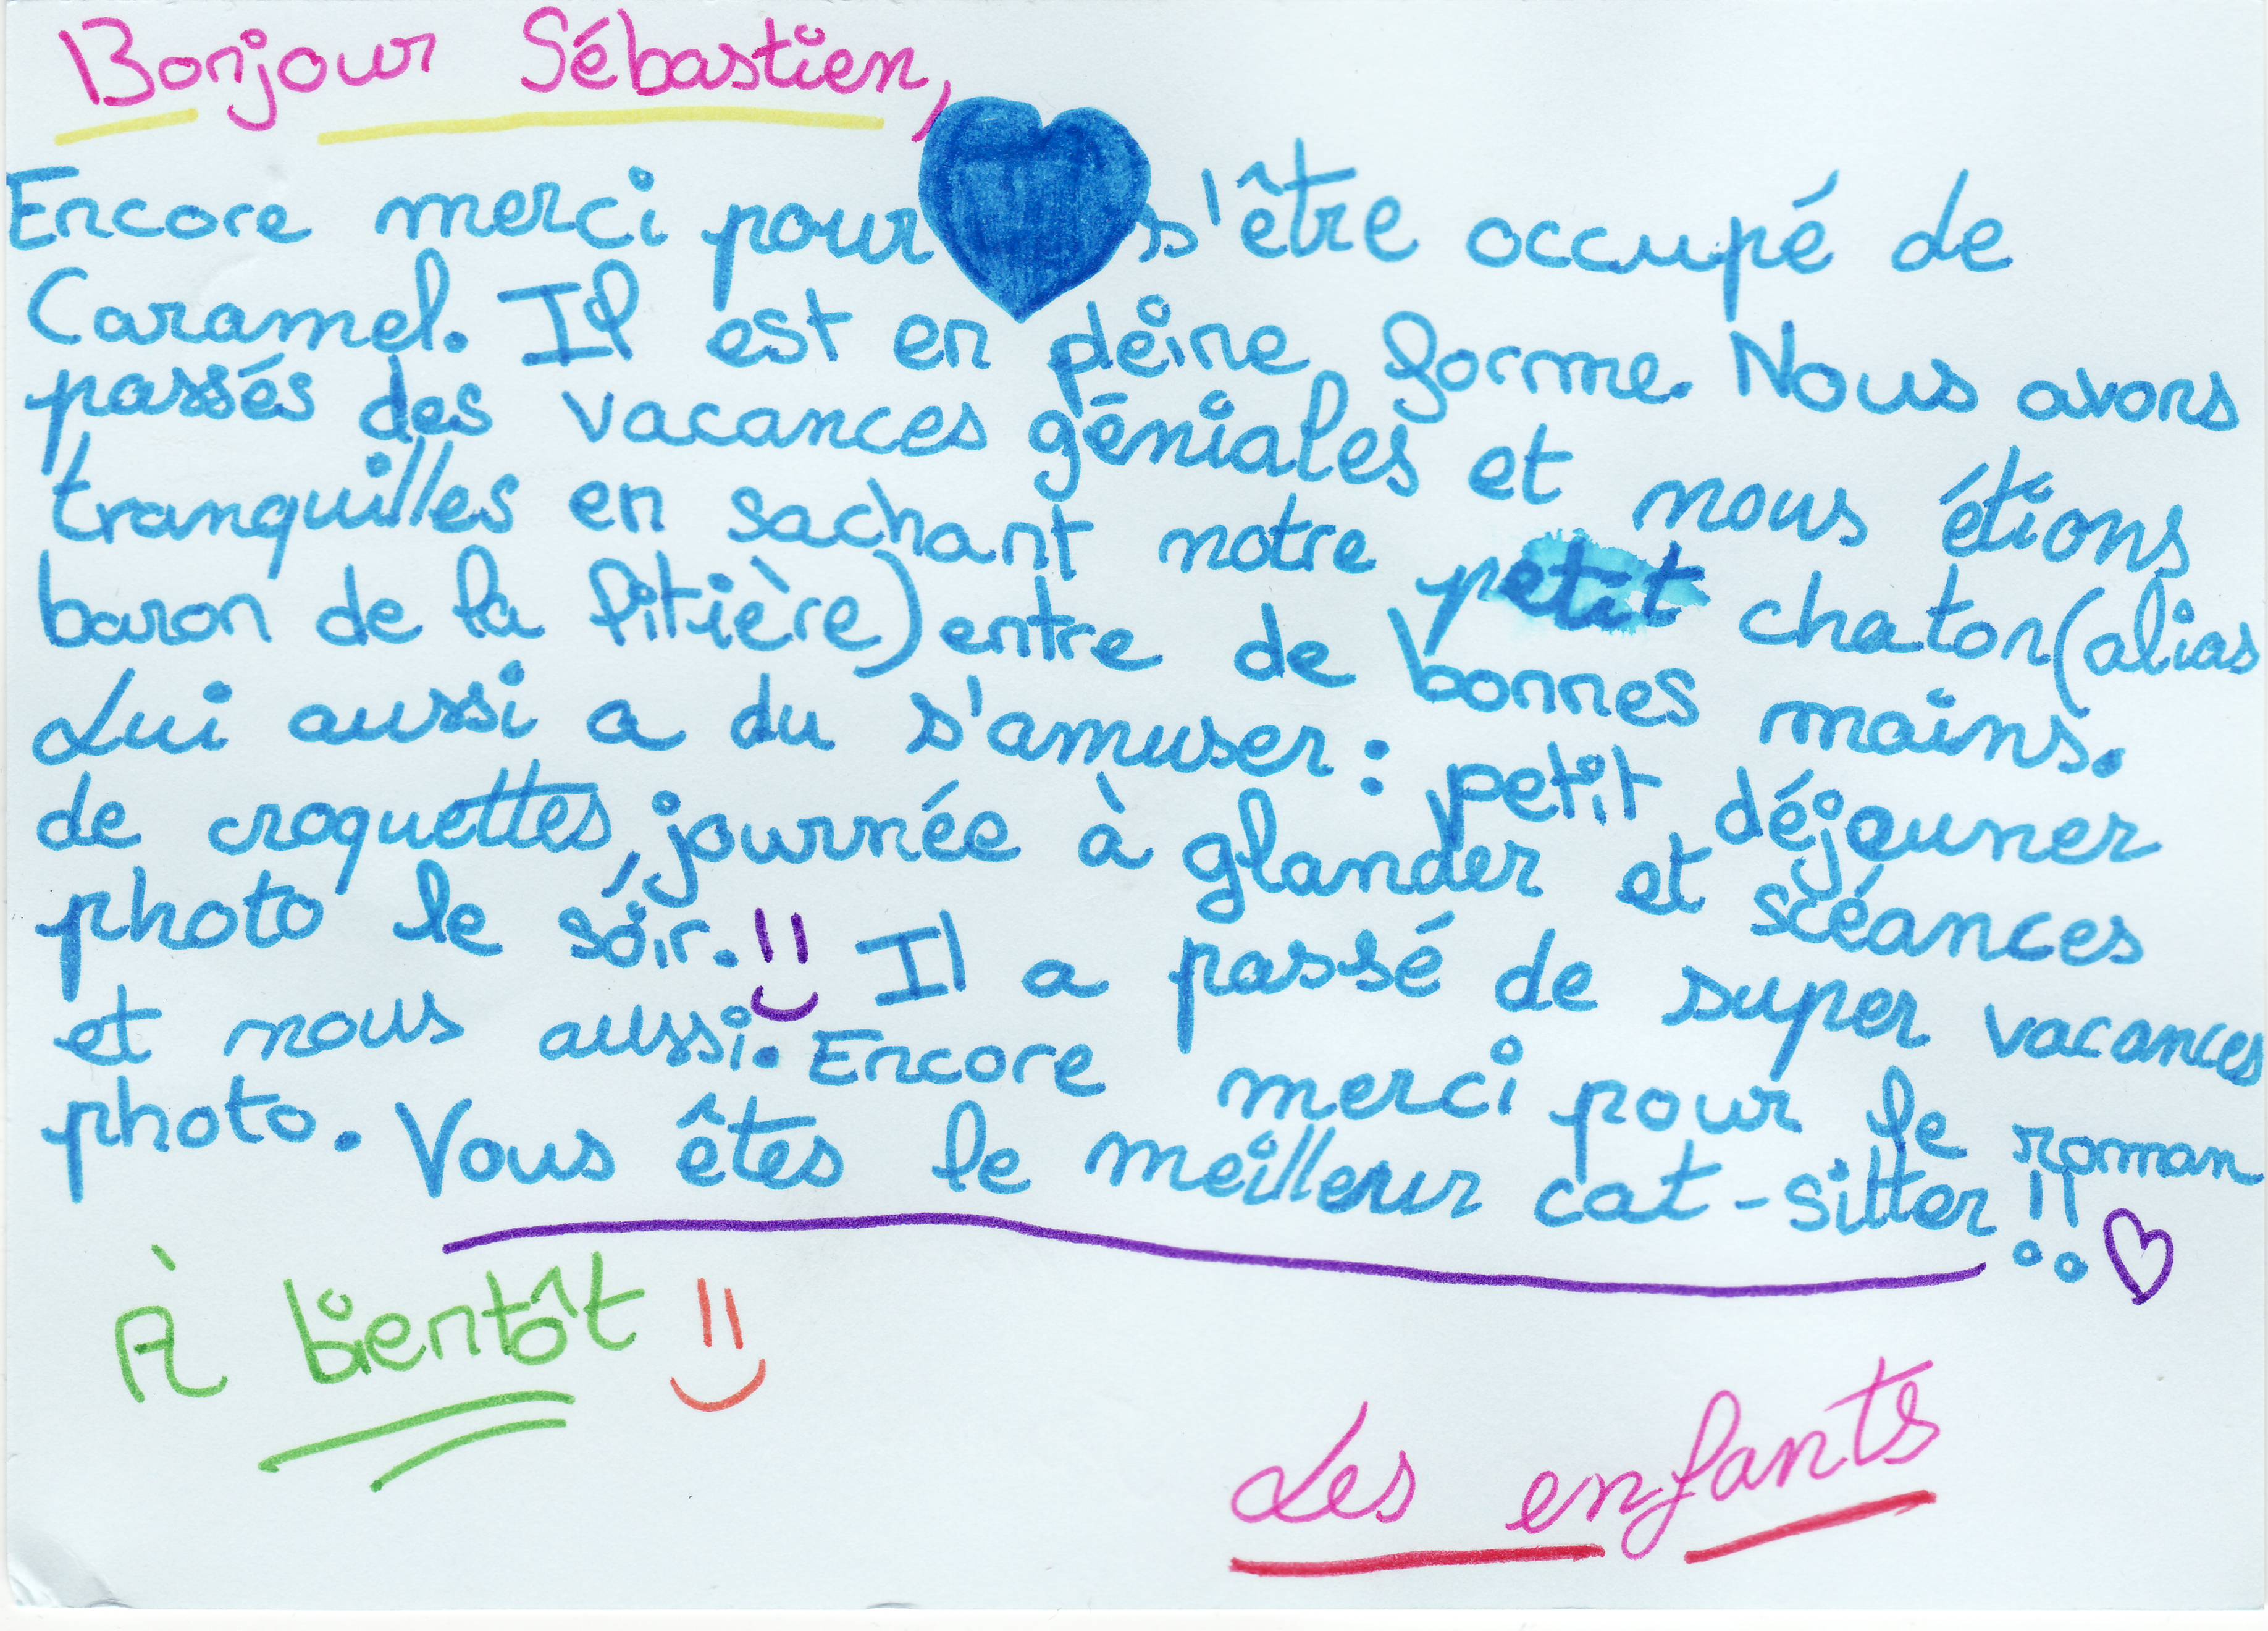 Bonjour Sébastien,
Encore merci pour s'être occupé de
Caramel. Il est en pleine forme. Nous avons
passés des vacances géniales et nous étions
tranquilles en sachant notre petit chaton (alias
baron de la litière) entre de bonnes mains.
Lui aussi a du s'amuser : petit déjeuner
de croquettes, journée à glander et scéances
photo le soir. Il a passé de super vacances
et nous aussi. Encore merci pour le roman
photo. Vous êtes le meilleur cat-sitter !!
À bientôt
Les enfants